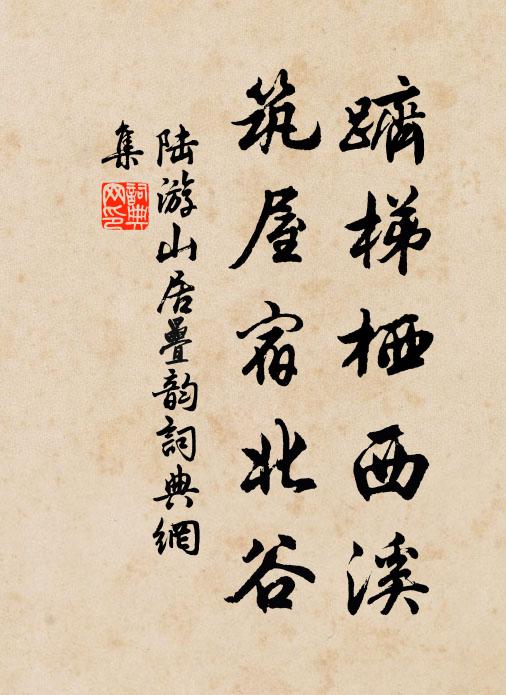 躋梯栖西溪
筑屋宿北谷
陆游山居疊韵詞典網
集
詞典
网印